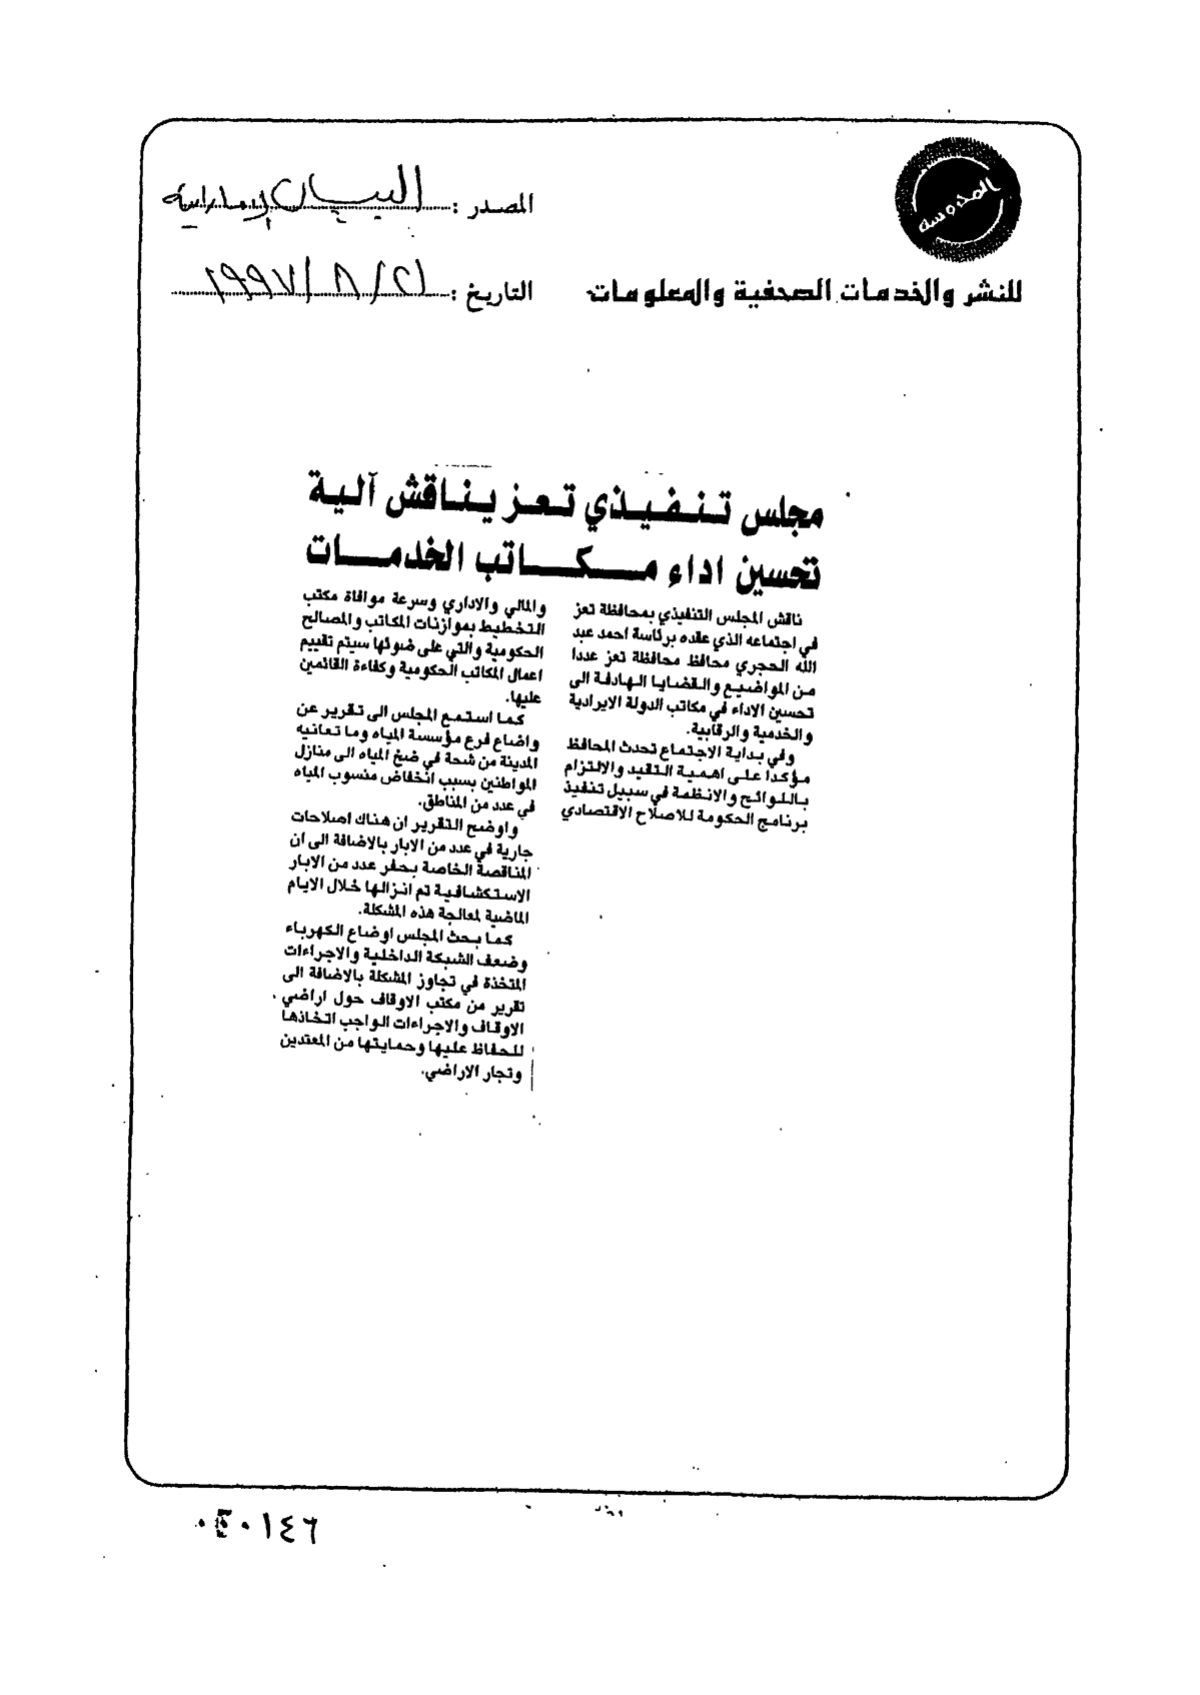 المحروسة
للنشر والخدمات الصحفية والمعلومات
المصدر : البيان الإماراتية
التاريخ : ٢١ / ٨ / ١٩٩٧
مجلس تنفيذي تعز يناقش آلية
تحسين اداء مكاتب الخدمات
ناقش المجلس التنفيذي بمحافظة تعز
في اجتماعه الذي عقده برئاسة احمد عبد
الله الحجري محافظ محافظة تعز عددا
من المواضيع والقضايا الهادفة الى
تحسين الاداء في مكاتب الدولة الايرادية
والخدمية والرقابية.
وفي بداية الاجتماع تحدث المحافظ
مؤكدا على اهمية التقيد والالتزام
باللوائح والانظمة في سبيل تنفيذ
برنامج الحكومة للاصلاح الاقتصادي
والمالي والاداري وسرعة موافاة مكتب
التخطيط بموازنات المكاتب والمصالح
الحكومية والتي على ضوئها سيتم تقييم
اعمال المكاتب الحكومية وكفاءة القائمين
عليها.
كما استمع المجلس الى تقرير عن
واضاع فرع مؤسسة المياه وما تعانيه
المدينة من شحة في ضخ المياه الى منازل
المواطنين بسبب انخفاض منسوب المياه
في عدد من المناطق.
واوضح التقرير ان هناك اصلاحات
جارية في عدد من الابار بالاضافة الى ان
المناقصة الخاصة بحفر عدد من الابار
الاستكشافية تم انزالها خلال الايام
الماضية لمعالجة هذه المشكلة.
كما بحث المجلس اوضاع الكهرباء
وضعف الشبكة الداخلية والاجراءات
المتخذة في تجاوز المشكلة بالاضافة الى
تقرير من مكتب الاوقاف حول اراضي
الاوقاف والاجراءات الواجب اتخاذها
للحفاظ عليها وحمايتها من المعتدين
وتجار الاراضي.